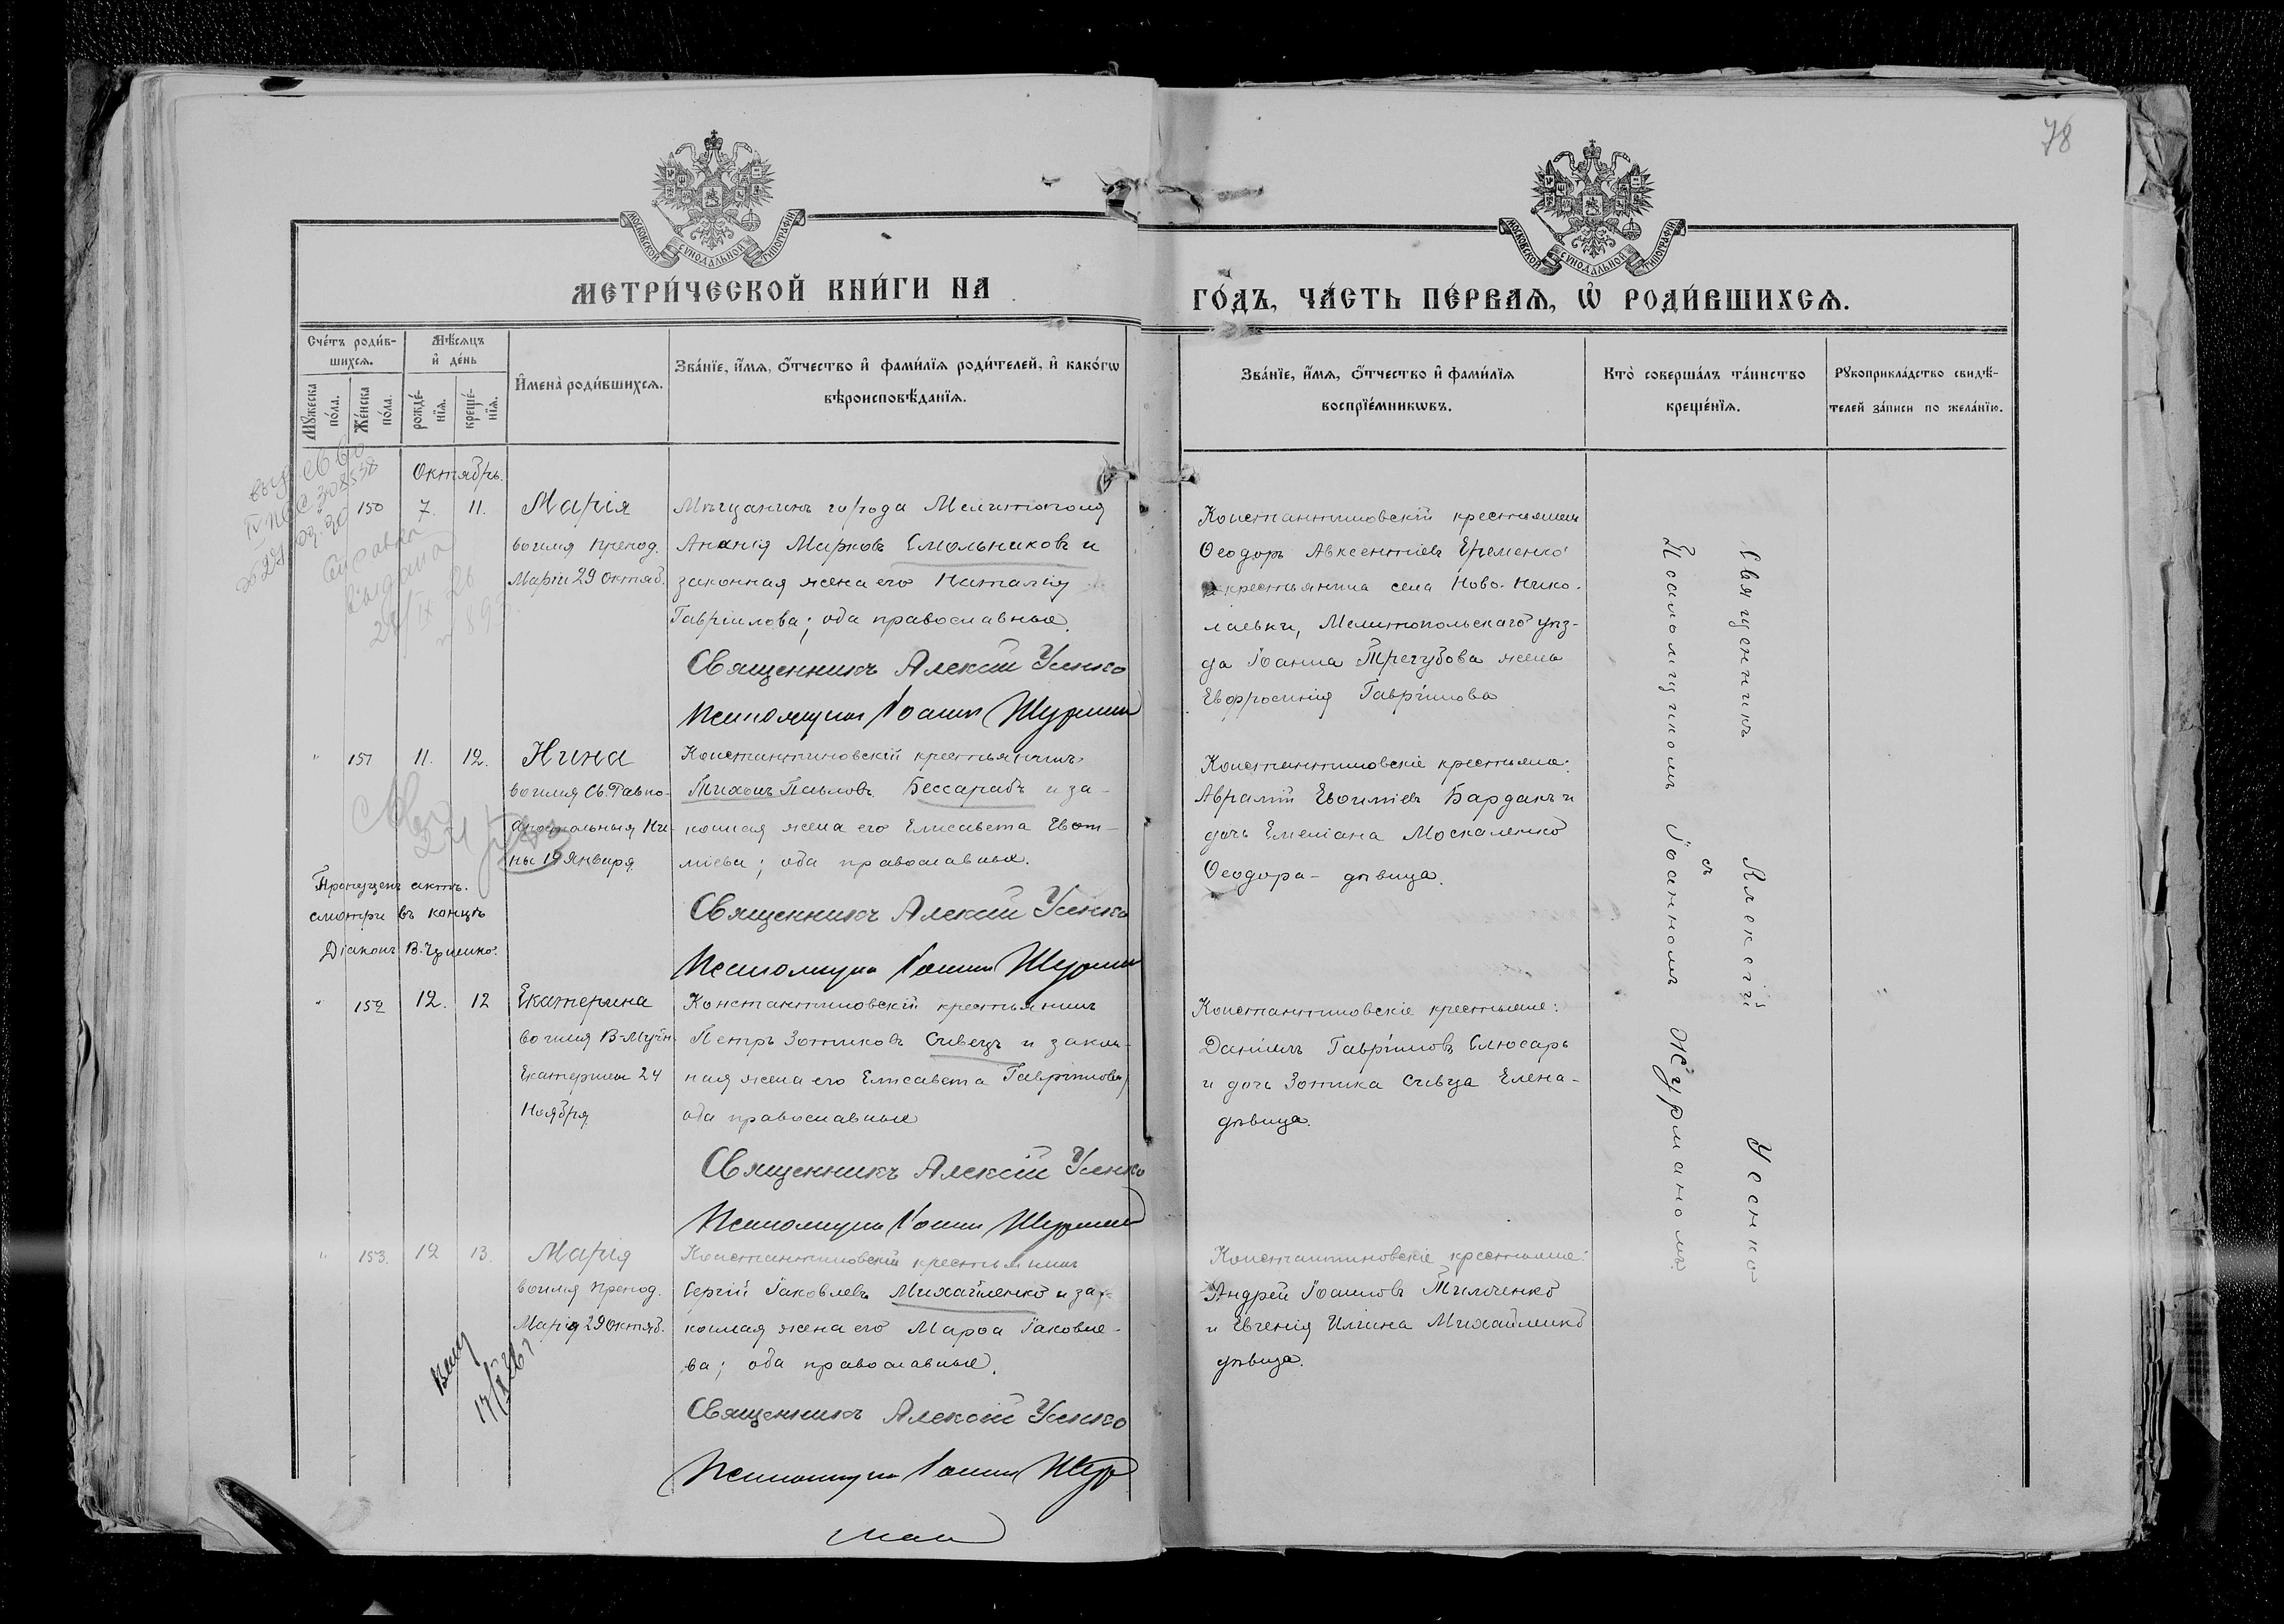 78
МОСКОВСКОЙ СѴНОДАЛЬНОЙ ТИПОГРАФІИ
МОСКОВСКОЙ СѴНОДАЛЬНОЙ ТИПОГРАФІИ
МЕТРИ́ЧЕСКОЙ КНИ́ГИ НА
ГО́ДЪ, ЧА́СТЬ ПЕ́РВАѦ, Ѽ РОДИ́ВШИХСѦ.
Сче́тъ роди́в-
шихсѧ.
Мꙋ́жеска по́ла.
Же́нска по́ла.
Мѣ́сѧцъ
и҆ де́нь
рожде́-
нїѧ.
креще́-
нїѧ.
И҆мена̀ роди́вшихсѧ.
Зва́нїе, и҆́мѧ, ѻ҆́тчество и҆ фами́лїѧ роди́телей, и҆ како́гѡ
вѣроисповѣ́данїѧ.
Зва́нїе, и҆́мѧ, ѻ҆́тчество и҆ фами́лїѧ
воспрїе́мникѡвъ.
Кто̀ соверша́лъ та́инство
креще́нїѧ.
Рꙋкоприкла́дство свидѣ́-
телей за́писи по жела́нїю.
Октябрь.
150 7. 11. Марія
во имя препод.
Маріи 29 Октяб.
Мѣщанинъ города Мелитополя
Ананія Марковъ Смольниковъ и
законная жена его Наталія
Гавріилова; оба православные.
Священникъ Алексій Усенко
Псаломщикъ Іоаннъ Журманъ
Константиновскій крестьянинъ
Ѳеодоръ Авксентіевъ Еременко
и крестьянина села Ново-Нико-
лаевки, Мелитопольскаго уѣз-
да Іоанна Трегубова жена
Евфросинія Гавріилова
" 151 11. 12. Нина
во имя Св. Равно-
апостольныя Ни-
ны 14 Января.
Константиновскій крестьянинъ
Тихонъ Павловъ Бессарабъ и за-
конная жена его Елисавета Евѳи-
міева; оба православные.
Священникъ Алексій Усенко
Псаломщикъ Іоаннъ Журманъ
Константиновскіе крестьяне:
Авраамій Евѳиміевъ Бардакъ и
дочь Емеліана Москаленко
Ѳеодора - дѣвица.
Пропущенъ актъ.
смотри въ концѣ
Діаконъ
" 152 12. 12 Екатерина
во имя В-Муч.
Екатерины 24
Ноября
Константиновскій крестьянинъ
Петръ Зотиковъ Сивецъ и закон-
ная жена его Елисавета Гавріилова;
оба православные
Священникъ Алексій Усенко
Псаломщикъ Іоаннъ Журманъ
Константиновскіе крестьяне:
Даніилъ Гавріиловъ Слюсарь
и дочь Зотика Сивца Елена-
дѣвица.
" 153. 12 13. Марія
во имя препод.
Маріи 29 Октяб.
Константиновскій крестьянинъ
Сергій Іаковлевъ Михайленко и за-
конная жена его Марѳа Іаковле-
ва; оба православные.
Священникъ Алексій Усенко
Псаломщикъ Іоаннъ Жур
манъ
Константиновскіе крестьяне:
Андрей Іоанновъ Тимченко
и Евгенія Илиина Михайленко
дѣвица.
Священникъ Алексій Усенко
съ
Псаломщикомъ Іоанномъ Журманомъ